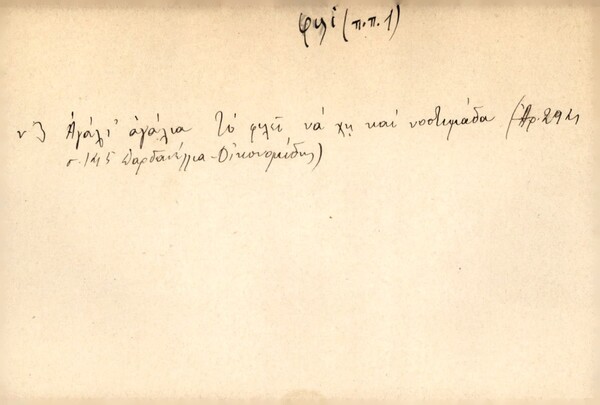 φιλί (π.π. 1)
ν 3 Ἀγάλι' ἀγάλια τὸ φιλὶ νά χῃ καὶ νοστιμάδα (Ἀρ. 294
σ. 145 Δαρδανέλλια - Οἰκονομίδης)